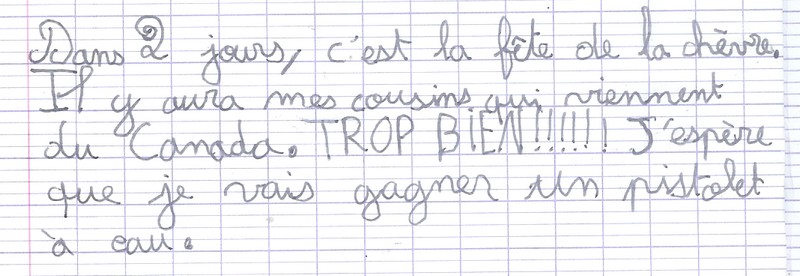 Dans 2 jours, c'est la fête de la chèvre.
Il y aura mes cousins qui viennent
du Canada. TROP BIEN!!!!!! J'espère
que je vais gagner un pistolet
à eau.